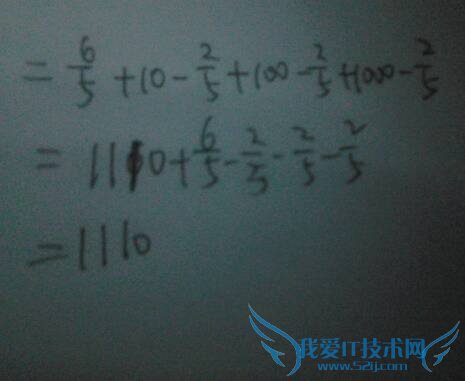 = 6/5 + 10 - 2/5 + 100 - 2/5 + 1000 - 2/5
= 1110 + 6/5 - 2/5 - 2/5 - 2/5
= 1110
我爱IT技术网
www.52ij.com